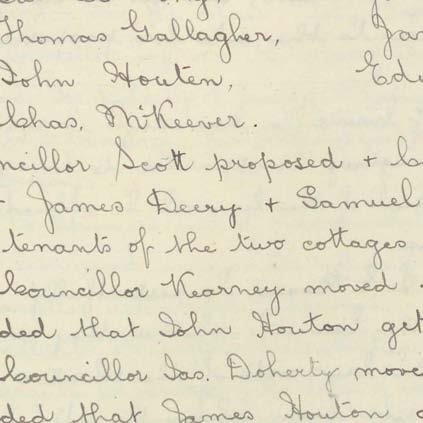 Thomas Gallagher, Jam
John Houten, Edw
Chas. McKeever.
ncillor Scott proposed + C
+ James Deery + Samuel
tenants of the two cottages
Councillor Kearney moved
ded that John Houton get
Councillor Jas. Doherty move
ded that James Houton